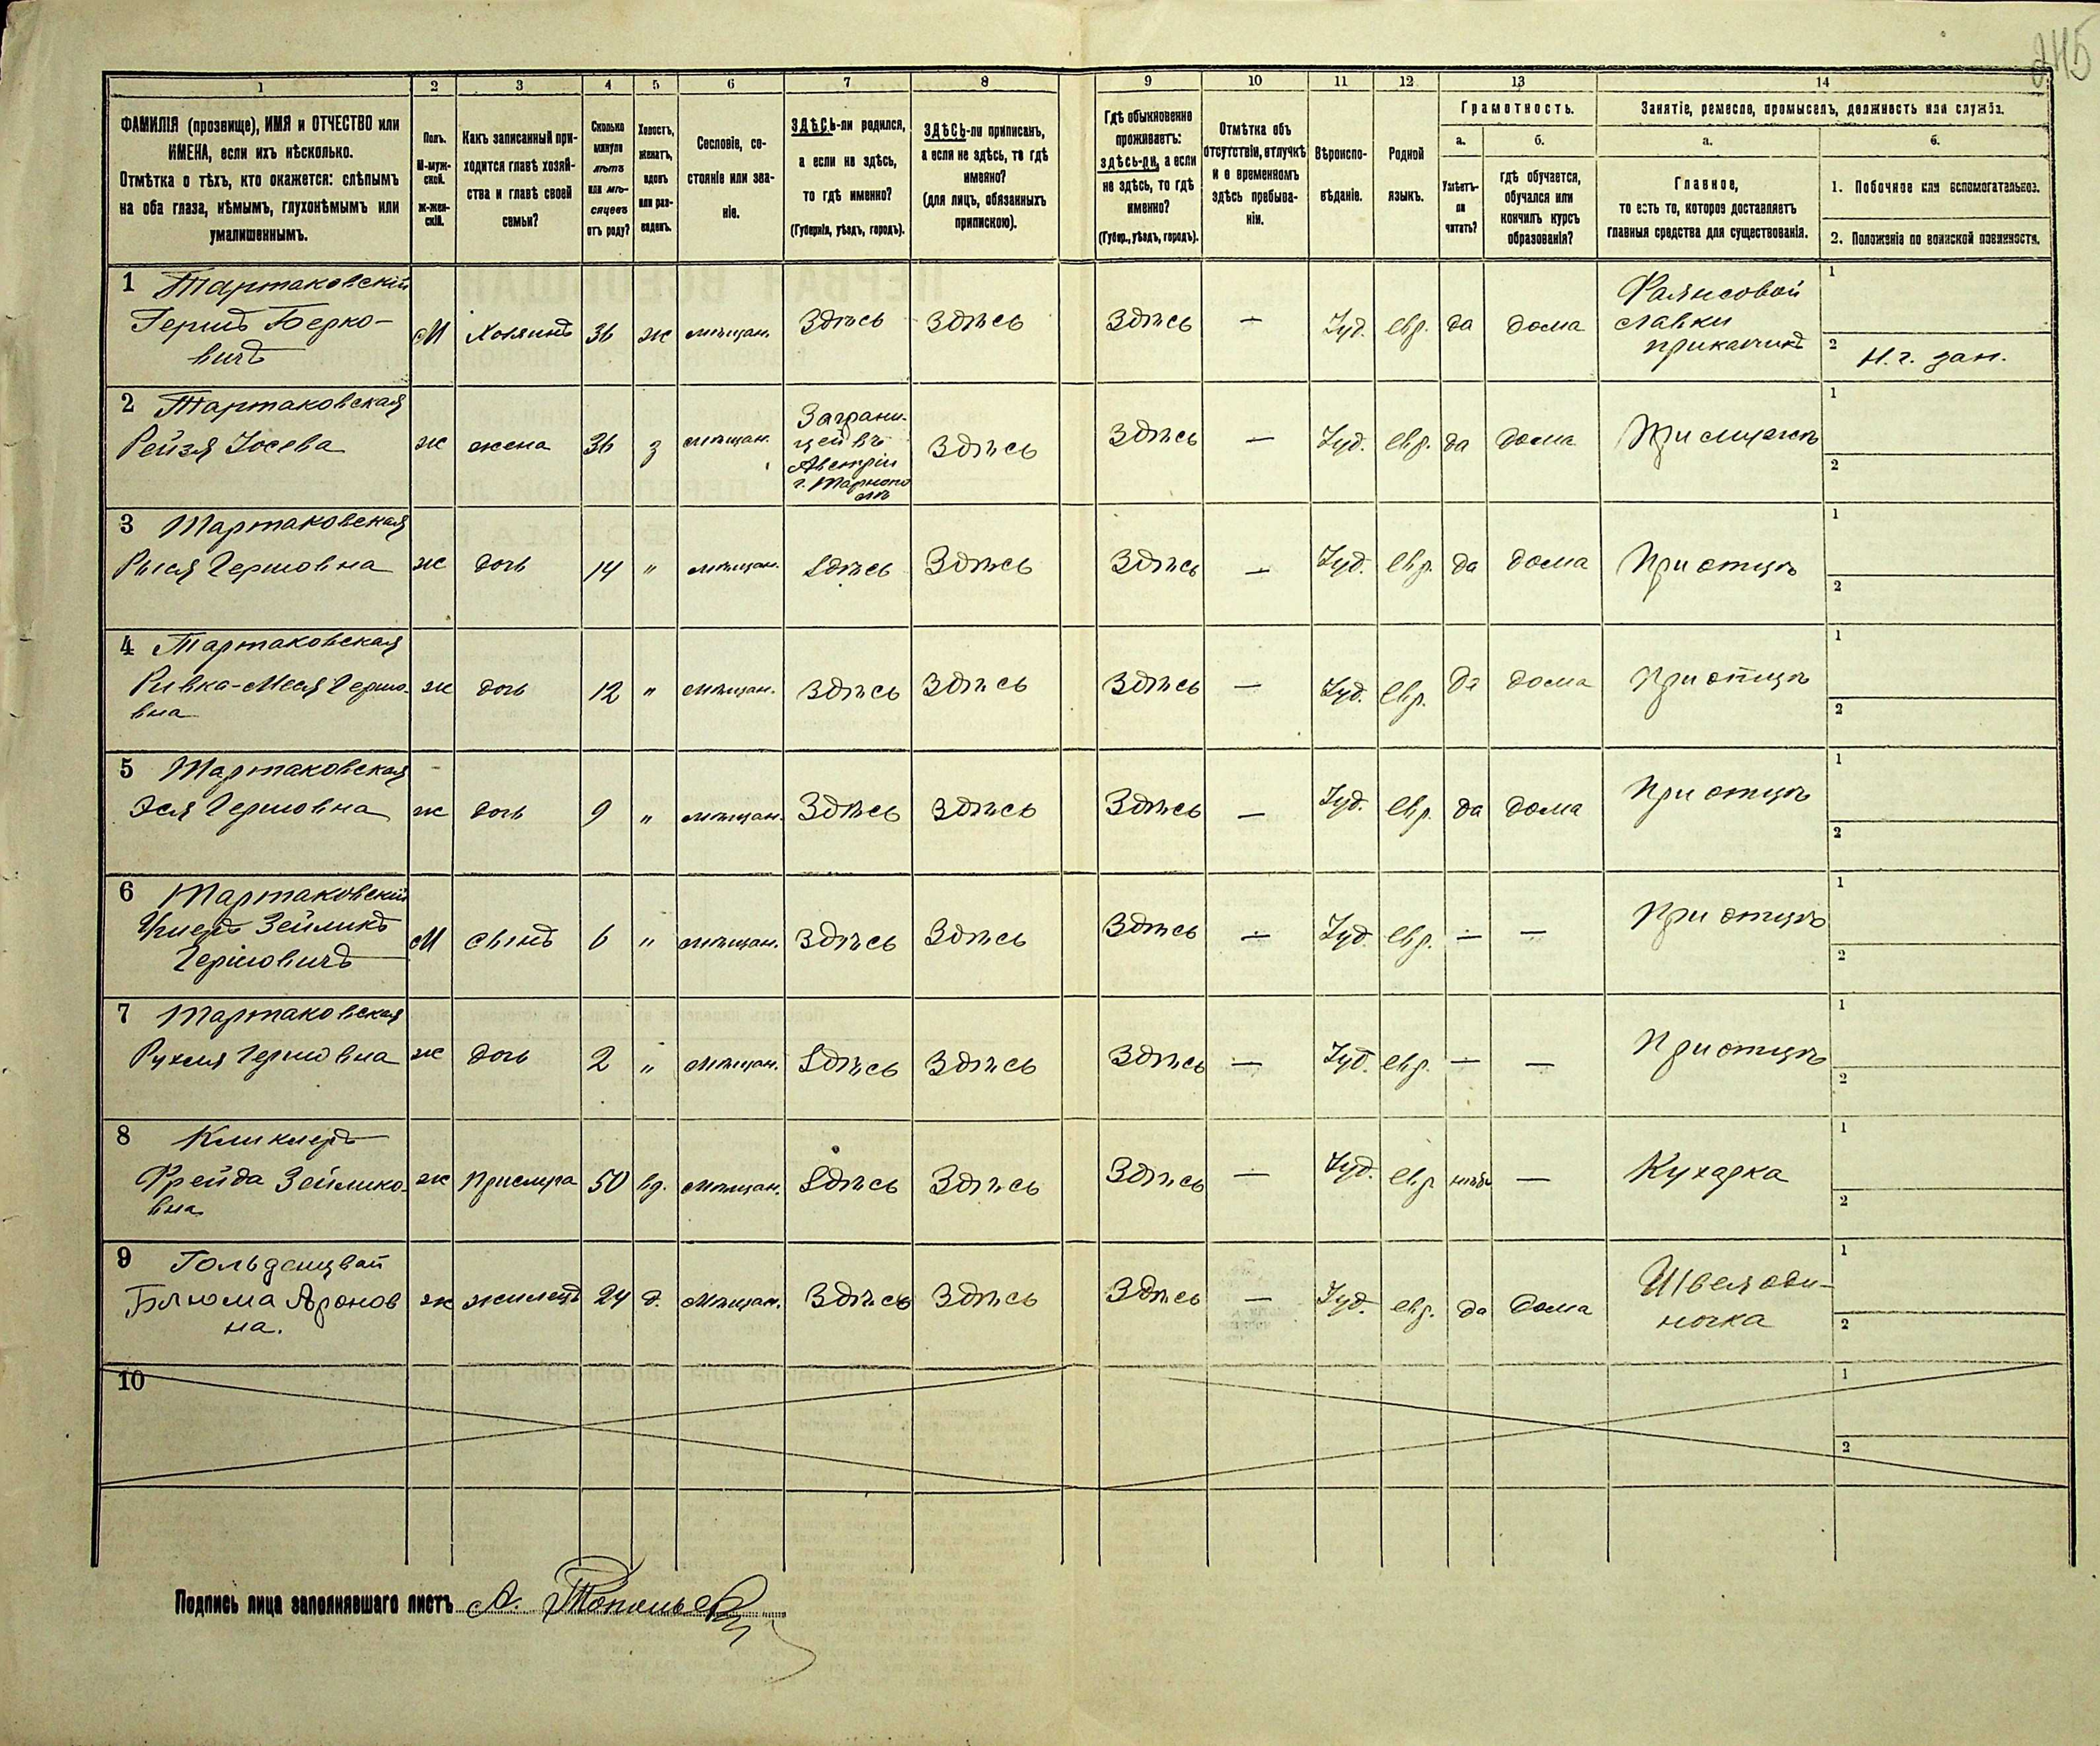 245
1 2 3 4 5 6 7 8 9 10 11 12 13 14
ФАМИЛІЯ (прозвище), ИМЯ и ОТЧЕСТВО или
ИМЕНА, если ихъ нѣсколько.
Отмѣтка о тѣхъ, кто окажется: слѣпымъ
на оба глаза, нѣмымъ, глухонѣмымъ или
умалишеннымъ.
Полъ.
М-муж-
ской.
Ж-жен-
скій.
Какъ записанный при-
ходится главѣ хозяй-
ства и главѣ своей
семьи?
Сколько
минуло
лѣтъ
или мѣ-
сяцевъ
отъ роду?
Холостъ,
женатъ,
вдовъ
или раз-
веденъ.
Сословіе, со-
стояніе или зва-
ніе.
ЗДѢСЬ-ли родился,
а если не здѣсь,
то гдѣ именно?
(Губернія, уѣздъ, городъ).
ЗДѢСЬ-ли приписанъ,
а если не здѣсь, то гдѣ
именно?
(для лицъ, обязанныхъ
припискою).
Гдѣ обыкновенно
проживаетъ:
здѣсь-ли, а если
не здѣсь, то гдѣ
именно?
(Губер., уѣздъ, городъ).
Отмѣтка объ
отсутствіи, отлучкѣ
и о временномъ
здѣсь пребыва-
ніи.
Вѣроиспо-
вѣданіе.
Родной
языкъ.
Грамотность.
а.
Умѣетъ-
ли
читать?
б.
гдѣ обучается,
обучался или
кончилъ курсъ
образованія?
Занятіе, ремесло, промыселъ, должность или служба.
а.
Главное,
то есть то, которое доставляетъ
главныя средства для существованія.
б.
1. Побочное или вспомогательное.
2. Положеніе по воинской повинности.
1 Тартаковскій
Гершъ Берко-
вичъ
М Хозяинъ 36 ж мѣщан. Здѣсь Здѣсь Здѣсь — Іуд. евр. да дома
Фаянсовой
лавки
приказчикъ
1
2 Н. г. зап.
2 Тартаковская
Рейзя Іосева
ж жена 36 з мѣщан.
Заграни-
цей въ
Австріи
г. Тарнопо
лѣ
Здѣсь Здѣсь — Іуд. евр. да дома При мужѣ
1
2
3 Тартаковская
Рыся Гершовна ж дочь 14 " мѣщан. Здѣсь Здѣсь Здѣсь — Іуд. евр. да дома При отцѣ
1
2
4 Тартаковская
Ривка-Меся Гершо-
вна
ж дочь 12 " мѣщан. Здѣсь Здѣсь Здѣсь — Іуд. евр. да дома При отцѣ
1
2
5 Тартаковская
Эся Гершовна ж дочь 9 " мѣщан. Здѣсь Здѣсь Здѣсь — Іуд. евр. да дома При отцѣ
1
2
6 Тартаковскій
Зейликъ
Гершовичъ
М сынъ 6 " мѣщан. Здѣсь Здѣсь Здѣсь — Іуд. евр. — — При отцѣ
1
2
7 Тартаковская
Рухля Гершовна ж дочь 2 " мѣщан. Здѣсь Здѣсь Здѣсь — Іуд. евр. — — При отцѣ
1
2
8 Кликлеръ
Фрейда Зейлико-
вна
ж Прислуга 50 вд. мѣщан. Здѣсь Здѣсь Здѣсь — Іуд. евр нѣтъ — Кухарка
1
2
9
Блюма Аронов
на.
ж жилецъ 24 д. мѣщан. Здѣсь Здѣсь Здѣсь — Іуд. евр. да дома
Швея оди-
ночка
1
2
10
1
2
Подпись лица заполнявшаго листъ А.